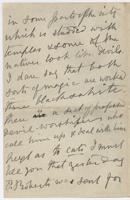 in some parts of the city
which is studded with
temples & some of the
natives look like devils
I dare say that both
sorts of magic are worked
there black & white.
there is a sect of
devil-worshippers who
call him up & deal with him
As to cats I must
tell you that yesterday
Roberts was sent for